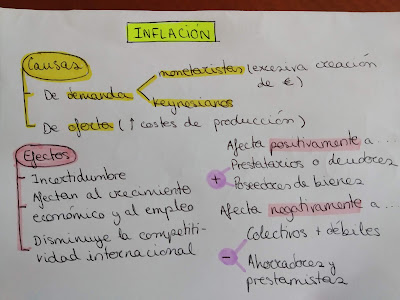 INFLACIÓN
Causas
De demanda
monetaristas (excesiva creación
de €)
keynesianos
De oferta (↑ costes de producción)
Efectos
Incertidumbre
Afectan al crecimiento
económico y al empleo
Disminuye la competiti-
vidad internacional
Afecta positivamente a...
+
Prestatarios o deudores
Poseedores de bienes
Afecta negativamente a...
-
Colectivos + débiles
Ahorradores y
prestamistas